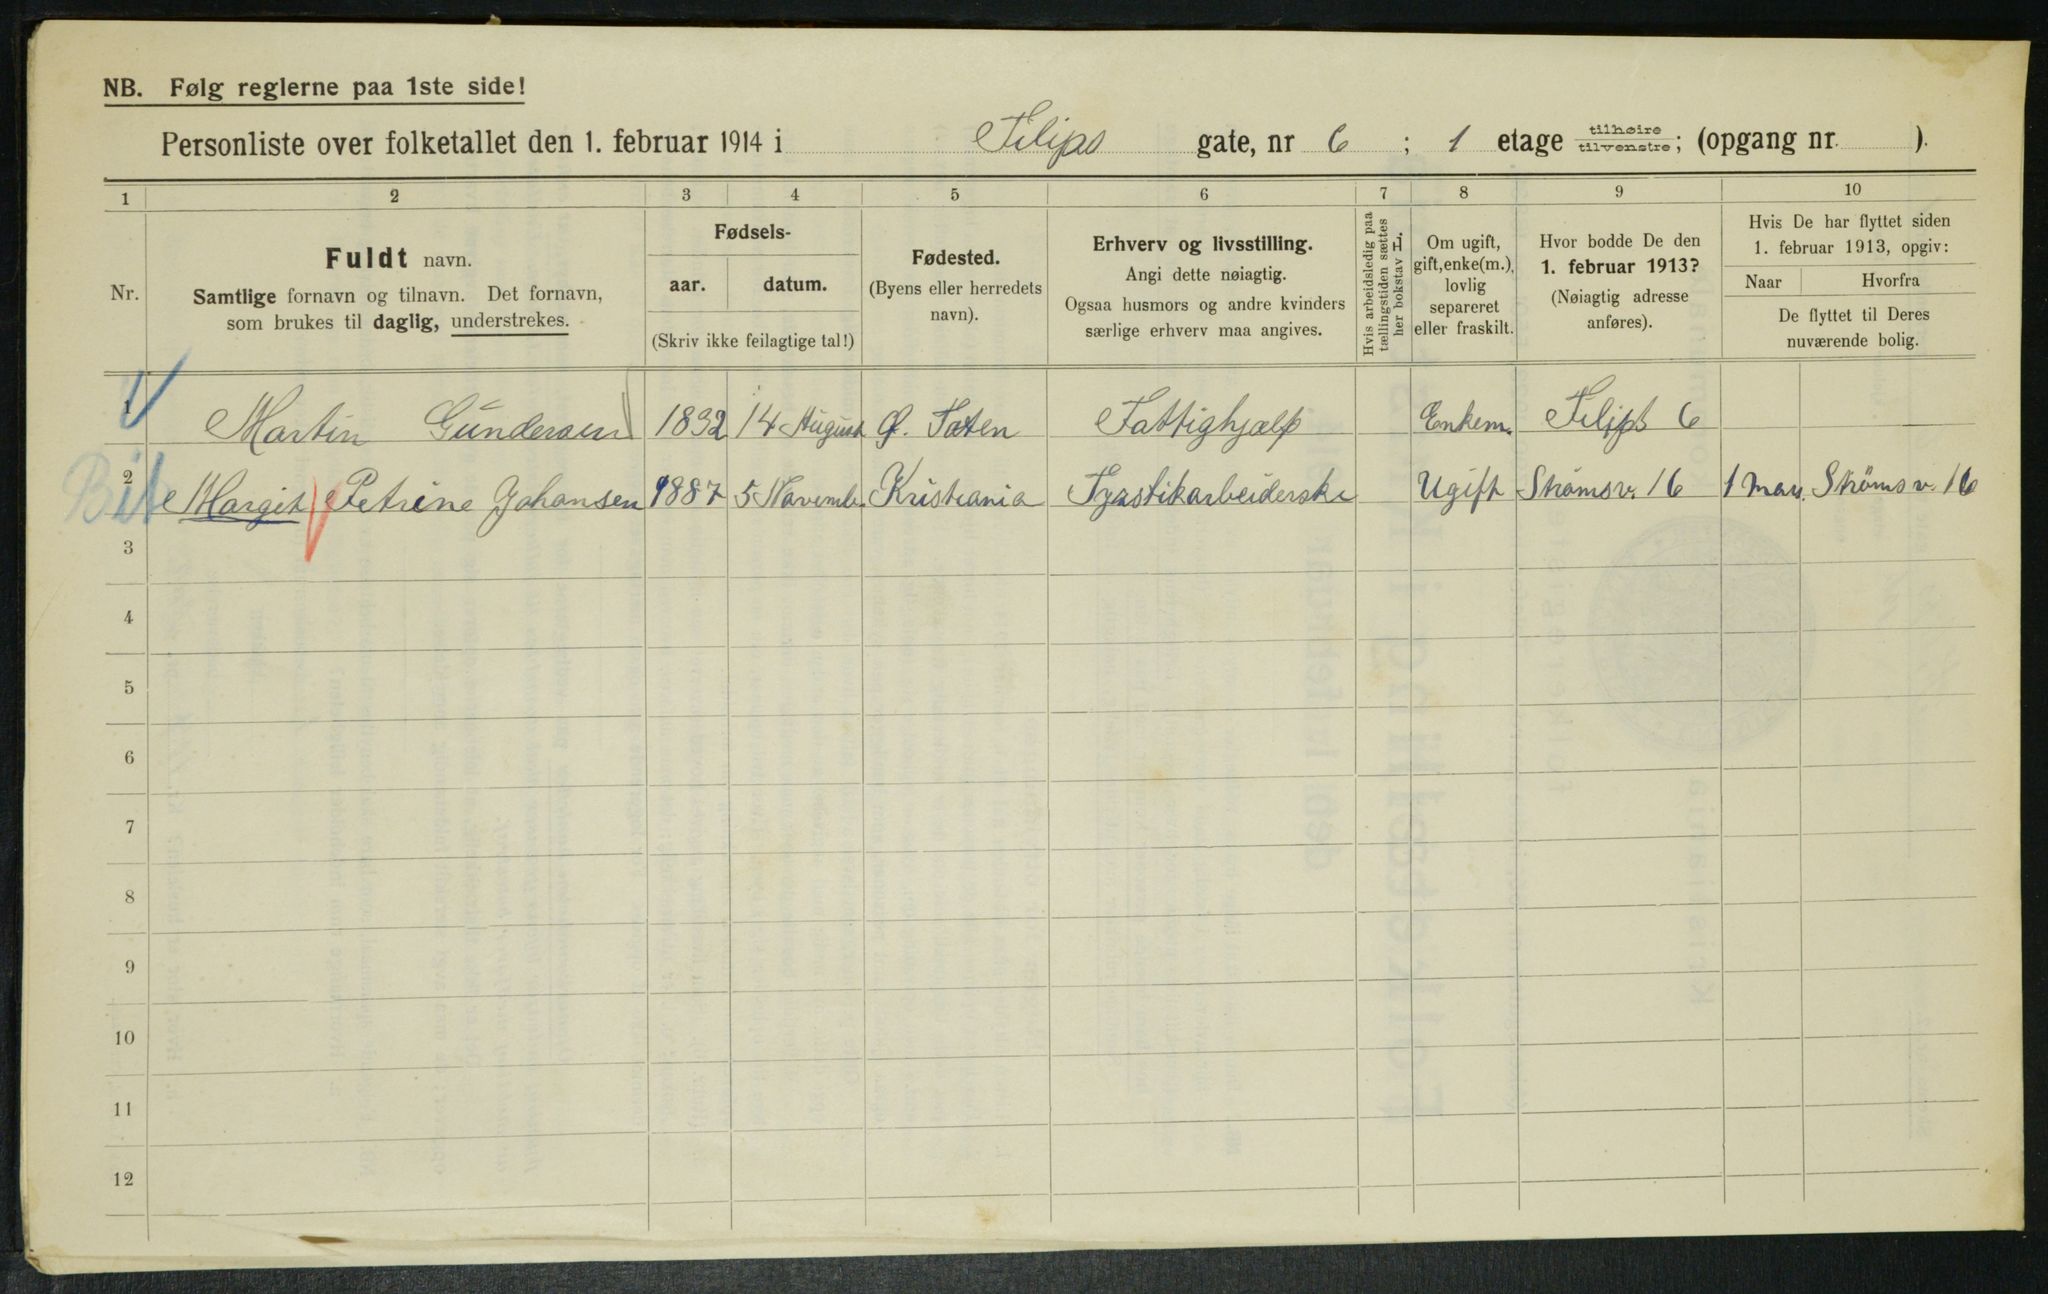 NB. Følg reglerne paa 1ste side!
Personliste over folketallet den 1. februar 1914 i Filips gate, nr 6 ; 1 etage tilhøire tilvenstre; (opgang nr. ).
1 2 3 4 5 6 7 8 9 10
Nr.
Fuldt navn.
Samtlige fornavn og tilnavn. Det fornavn,
som brukes til daglig, understrekes.
Fødsels-
aar. datum.
(Skriv ikke feilagtige tal!)
Fødested.
(Byens eller herredets
navn).
Erhverv og livsstilling.
Angi dette nøiagtig.
Ogsaa husmors og andre kvinders
særlige erhverv maa angives.
Hvis arbeidsledig paa
tællingstiden sættes
her bokstav L.
Om ugift,
gift, enke(m.),
lovlig
separeret
eller fraskilt.
Hvor bodde De den
1. februar 1913?
(Nøiagtig adresse
anføres).
Hvis De har flyttet siden
1. februar 1913, opgiv:
Naar Hvorfra
De flyttet til Deres
nuværende bolig.
1 Martin Gundersen 1832 14 August Ø. Toten Fattighjælp Enkem. Filips 6
2 Margit Petrine Johansen 1887 5 Novemb. Kristiania Ugift Strømsv. 16 1 mars. Strømsv. 16
3
4
5
6
7
8
9
10
11
12